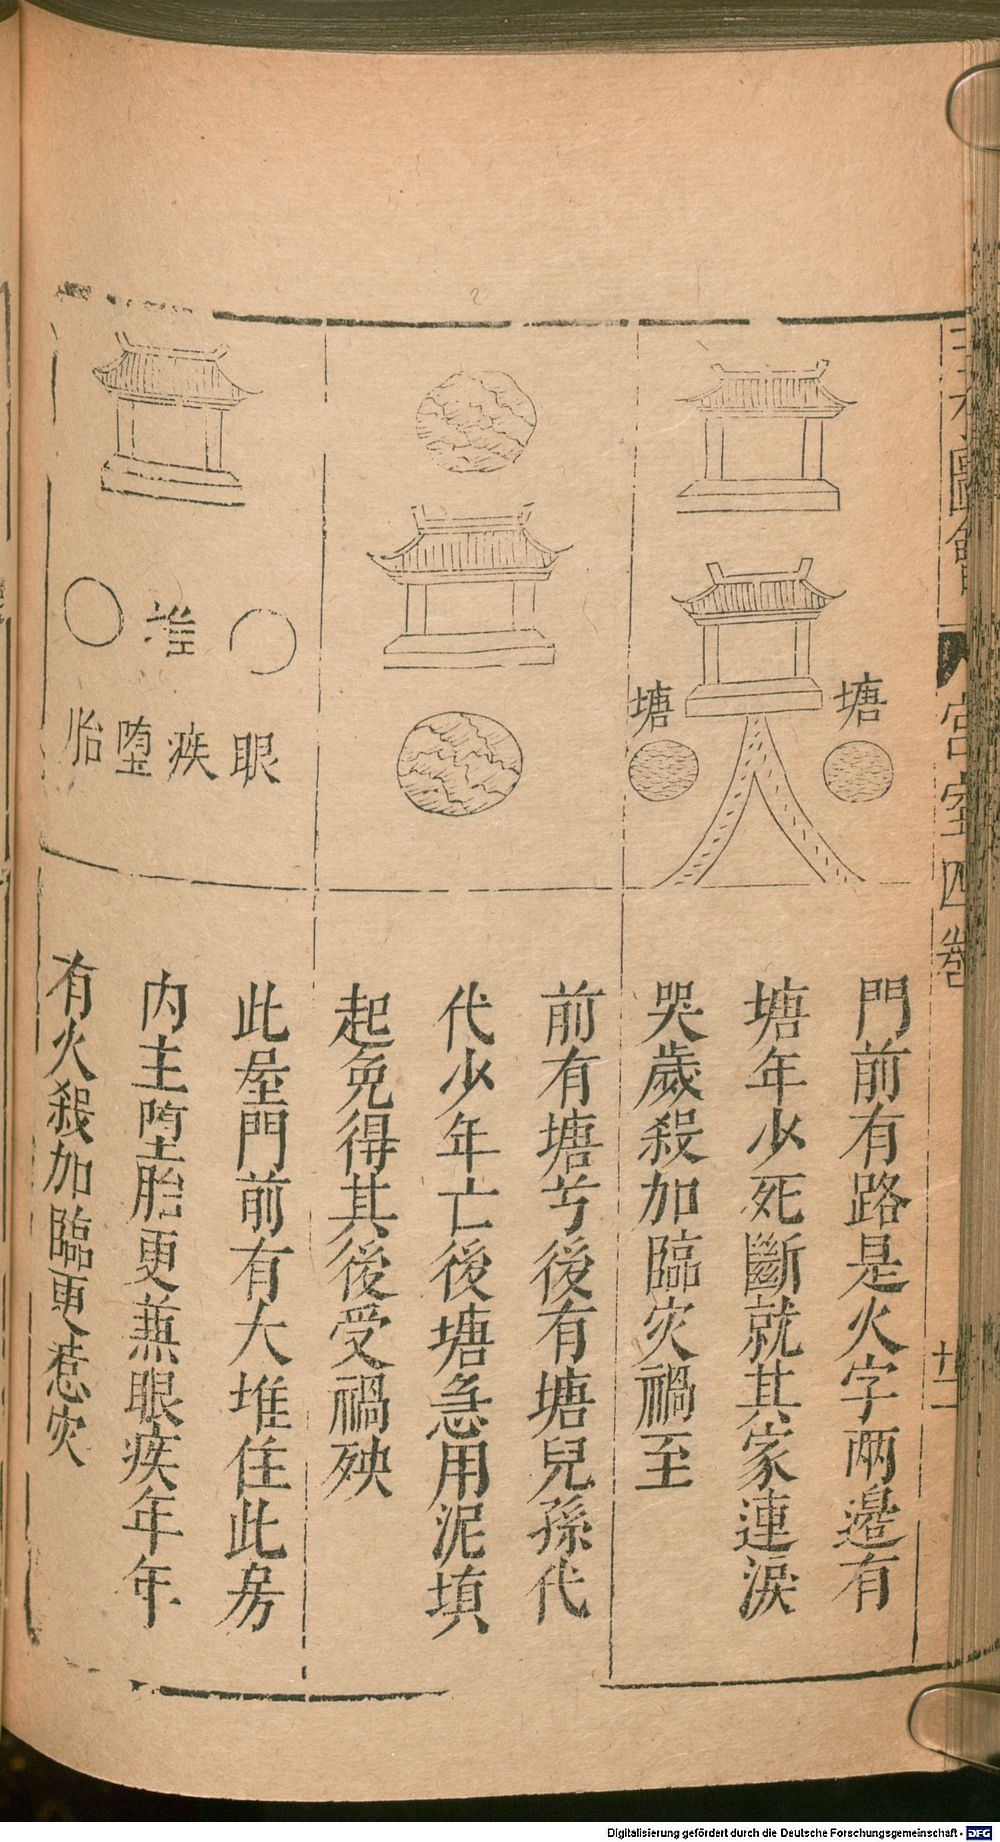 三才圖會
宮室四卷
塘
塘
門前有路是火字两邉有
塘年少死斷就其家連淚
哭歲殺加臨灾禍至
前有塘兮後有塘兒孫代
代少年亡後塘急用泥填
起免得其後受禍殃
堆
眼疾堕胎
此屋門前有大堆住此房
内主堕胎更蕪眼疾年年
有火殺加臨更惹灾
Digitalisierung gefördert durch die Deutsche Forschungsgemeinschaft - DFG